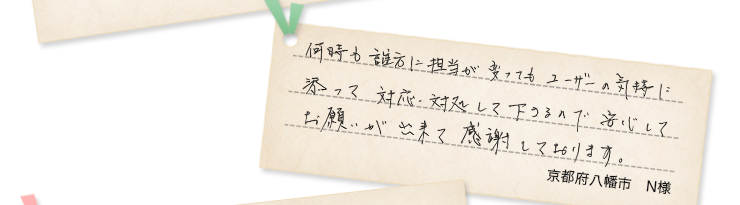 何時も誰方に担当が変ってもユーザーの気持に
添って対応・対処して下さるので安心して
お願いが出来て感謝しております。
京都府八幡市 N様